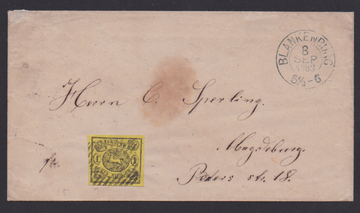 BLANKENBURG
8
SEP
5½-6
Herrn C. Sperling.
fr.
Magdeburg.
Peters str. 18.